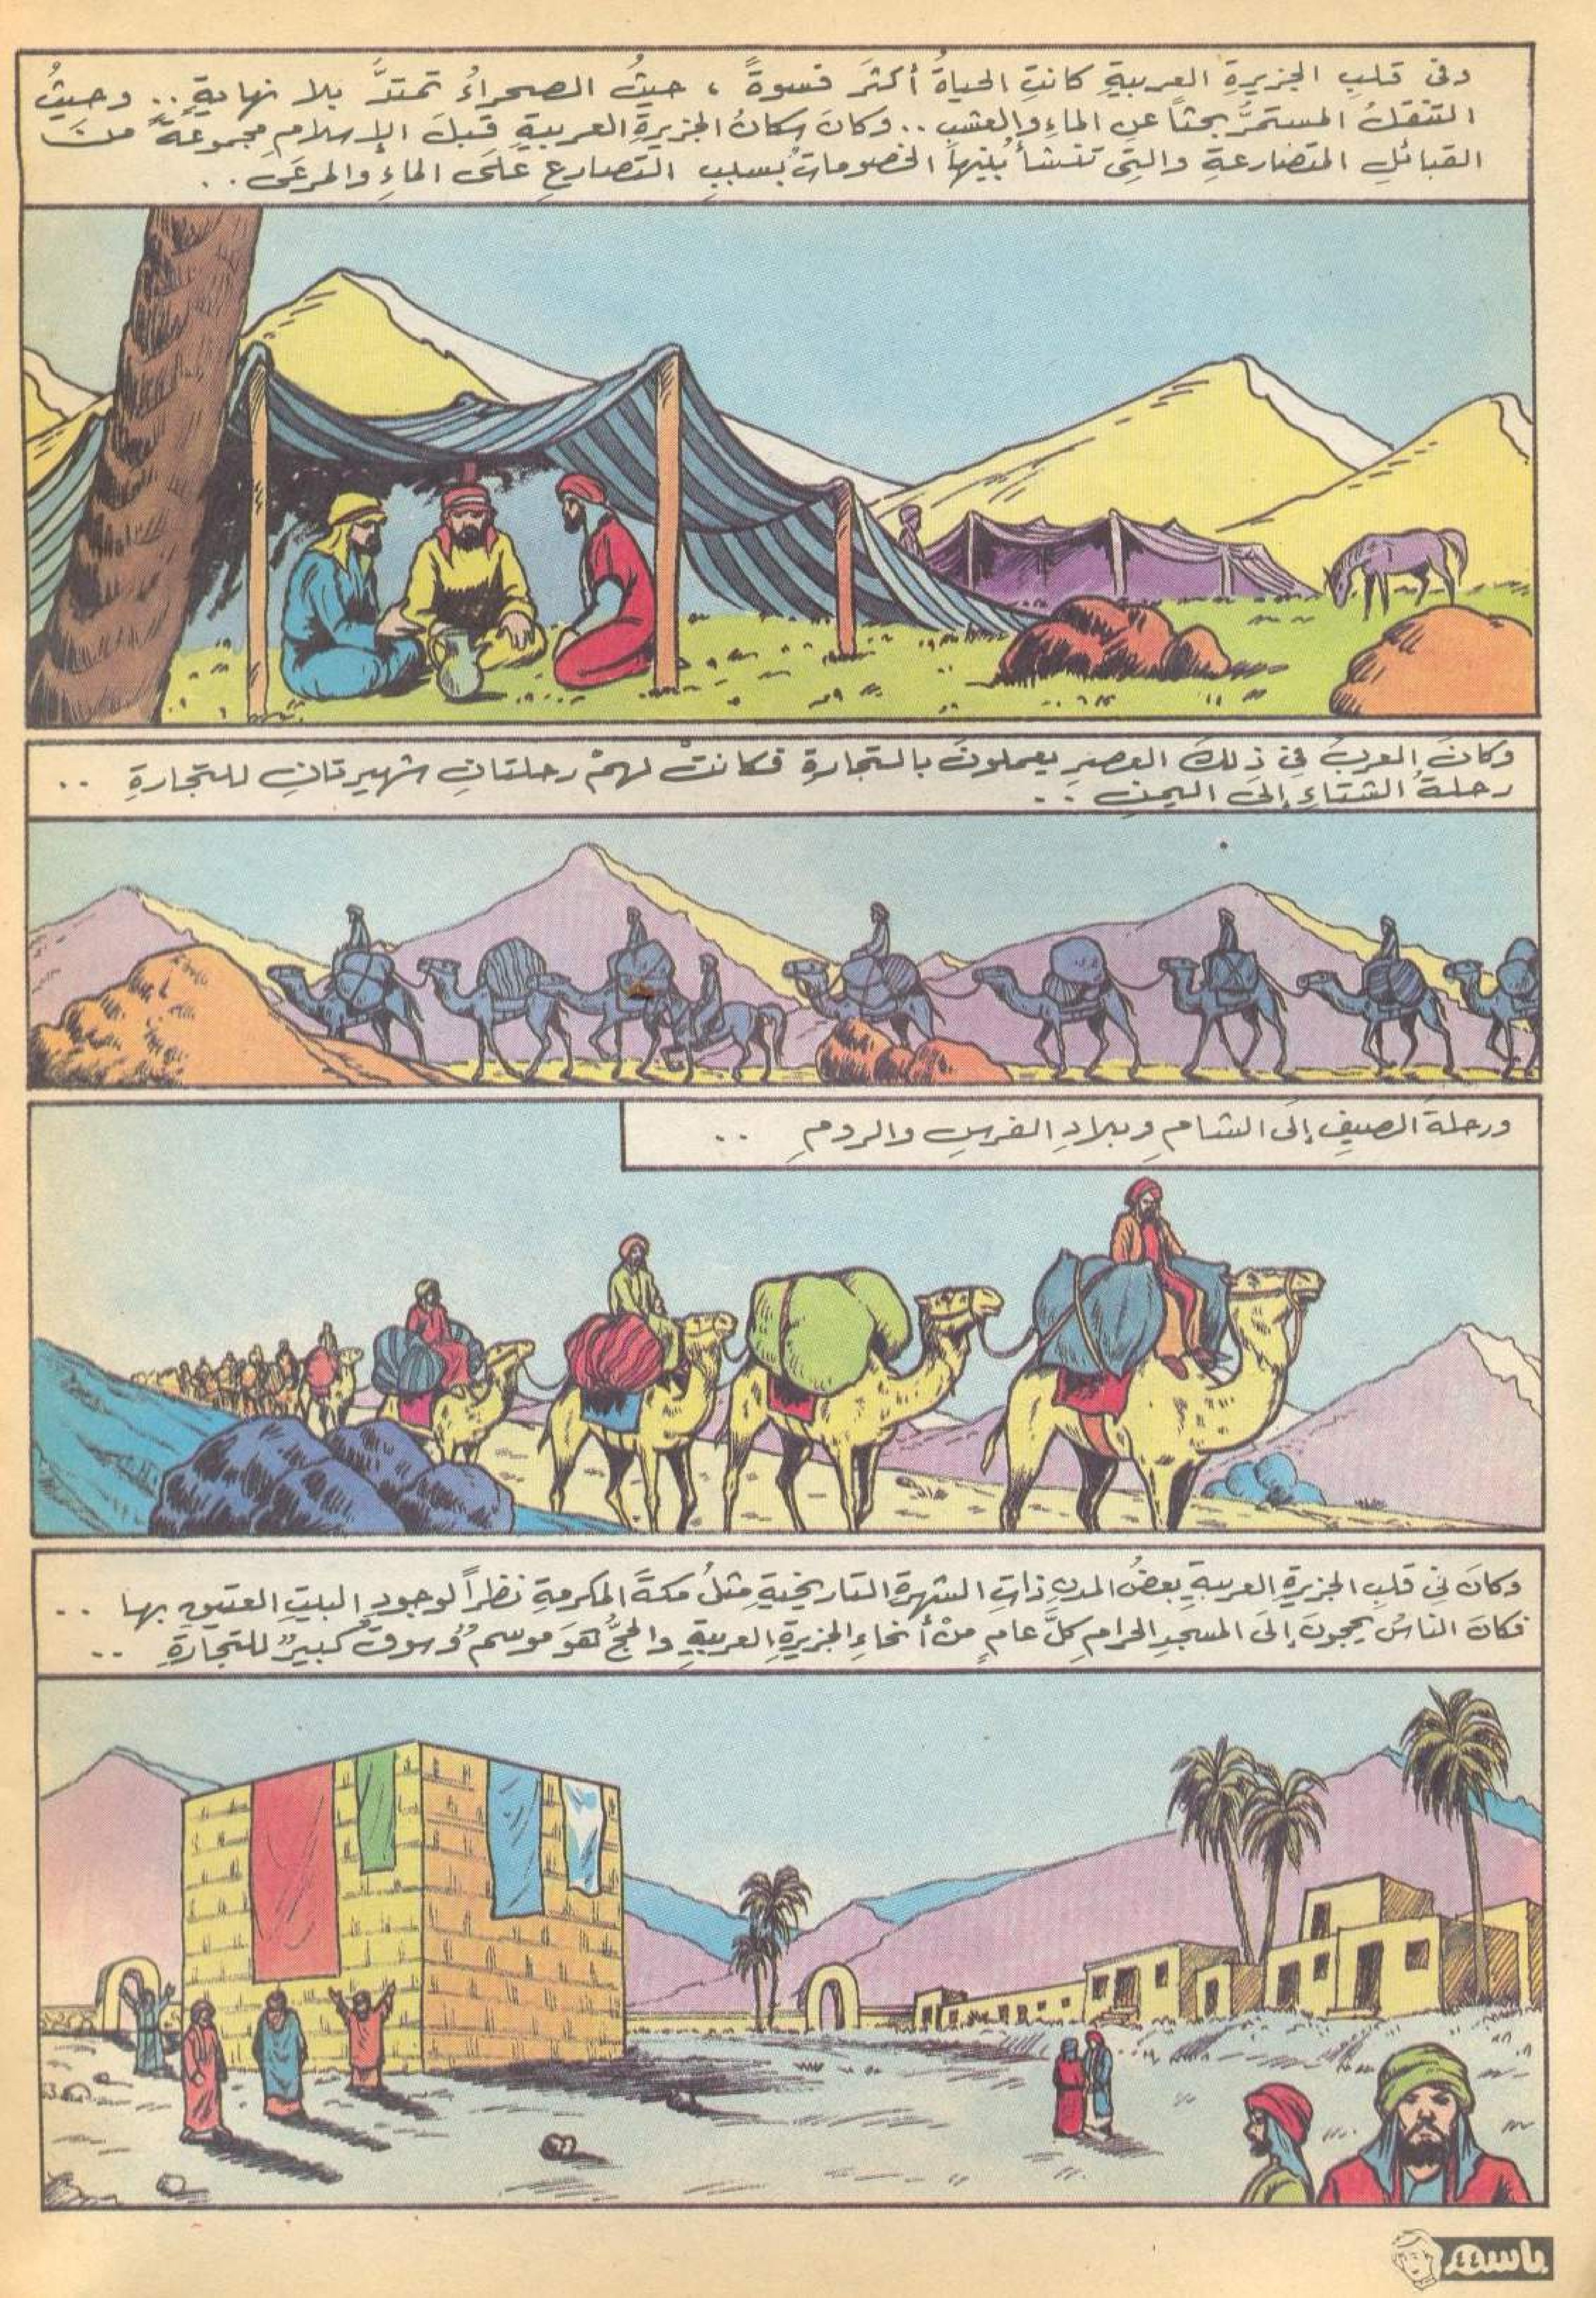 وفى قلبِ الجزيرةِ العربيةِ كانتِ الحياةُ أكثرَ قسوةً ، حيثُ الصحراءُ تمتدُّ بلا نهايةٍ .. وحيثُ
التنقلُ المستمرُّ بحثاً عنِ الماءِ والعشبِ .. وكانَ سكانُ الجزيرةِ العربيةِ قبلَ الإسلامِ مجموعةً منَ
القبائلِ المتصارعةِ والتِى تنشأُ بينها الخصوماتُ بسببِ التصارعِ علَى الماءِ والمرعَى ..
وكانَ العربُ فِى ذلكَ العصرِ يعملونَ بالتجارةِ فكانتْ لهمْ رحلتانِ شهيرتانِ للتجارةِ ..
رحلةُ الشتاءِ إلَى اليمنِ ..
ورحلةُ الصيفِ إلَى الشامِ وبلادِ الفرسِ والرومِ ..
وكانَ فِى قلبِ الجزيرةِ العربيةِ بعضُ المدنِ ذاتِ الشهرةِ التاريخيةِ مثلُ مكةَ المكرمةِ نظراً لوجودِ البيتِ العتيقِ بها ..
فكانَ الناسُ يحجونَ إلَى المسجدِ الحرامِ كلَّ عامٍ منْ أنحاءِ الجزيرةِ العربيةِ والحجُّ هوَ موسمٌ وسوقٌ كبيرٌ للتجارةِ ..
باسم